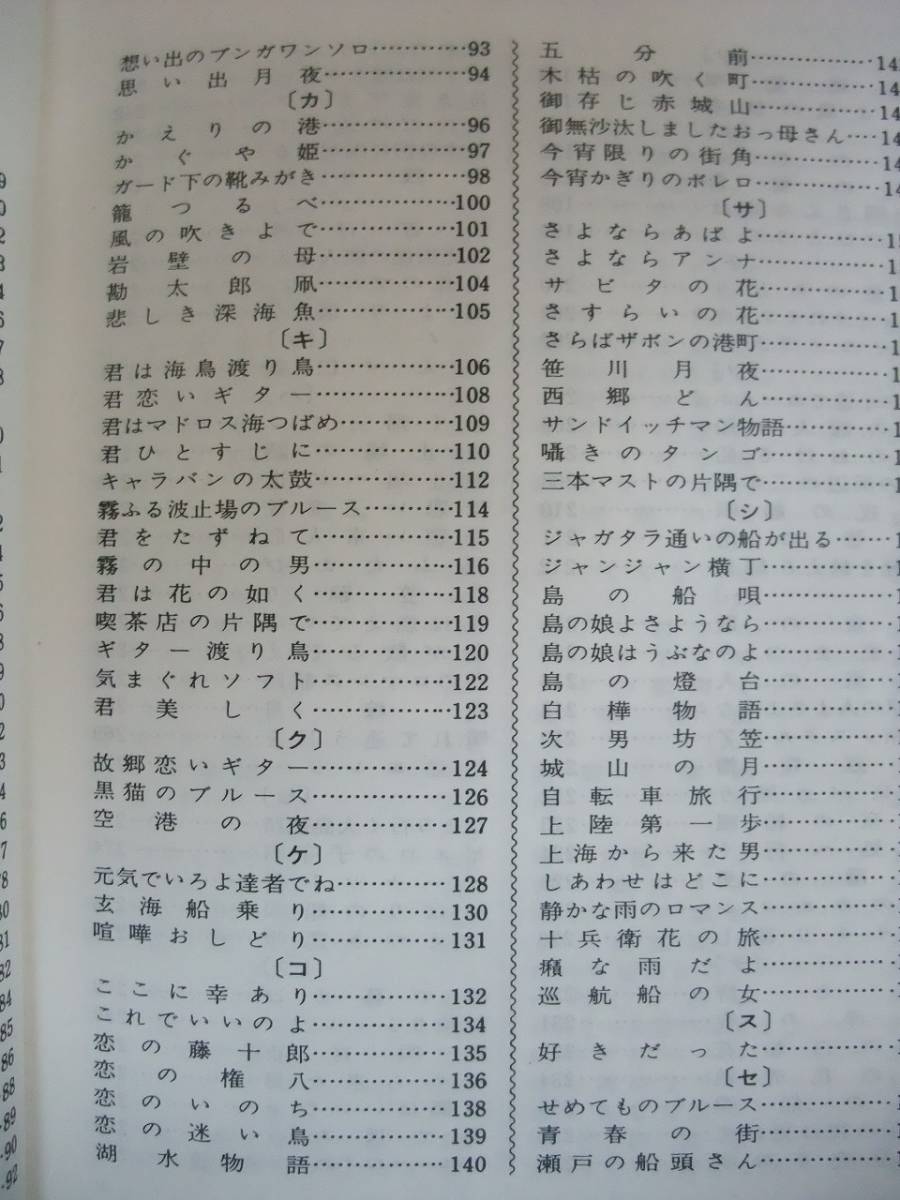 想い出のブンガワンソロ…………93
思い出月夜………………94
〔カ〕
かえりの港………………96
かぐや姫………………97
ガード下の靴みがき………………98
籠つるべ………………100
風の吹きよで………………101
岩壁の母………………102
勘太郎凧………………104
悲しき深海魚………………105
〔キ〕
君は海鳥渡り鳥………………106
君恋いギター………………108
君はマドロス海つばめ…………109
君ひとすじに………………110
キャラバンの太鼓………………112
霧ふる波止場のブルース………114
君をたずねて………………115
霧の中の男………………116
君は花の如く………………118
喫茶店の片隅で………………119
ギター渡り鳥………………120
気まぐれソフト………………122
君美しく………………123
〔ク〕
故郷恋いギター………………124
黒猫のブルース………………126
空港の夜………………127
〔ケ〕
元気でいろよ達者でね…………128
玄海船乗り………………130
喧嘩おしどり………………131
〔コ〕
ここに幸あり………………132
これでいいのよ………………134
恋の藤十郎………………135
恋の権八………………136
恋のいのち………………138
恋の迷い鳥………………139
湖水物語………………140
五分前………………14
木枯の吹く町………………14
御存じ赤城山………………14
御無沙汰しましたおっ母さん……14
今宵限りの街角………………14
今宵かぎりのボレロ……………14
〔サ〕
さよならあばよ………………15
さよならアンナ………………1
サビタの花………………1
さすらいの花………………1
さらばザボンの港町……………1
笹川月夜………………1
西郷どん………………1
サンドイッチマン物語…………1
囁きのタンゴ………………1
三本マストの片隅で……………1
〔シ〕
ジャガタラ通いの船が出る……1
ジャンジャン横丁………………1
島の船唄………………1
島の娘よさようなら……………1
島の娘はうぶなのよ……………1
島の燈台………………1
白樺物語………………1
次男坊笠………………1
城山の月………………1
自転車旅行………………1
上陸第一歩………………1
上海から来た男………………1
しあわせはどこに………………1
静かな雨のロマンス……………1
十兵衛花の旅………………1
癪な雨だよ………………1
巡航船の女………………1
〔ス〕
好きだった………………1
〔セ〕
せめてものブルース……………1
青春の街………………1
瀬戸の船頭さん………………1